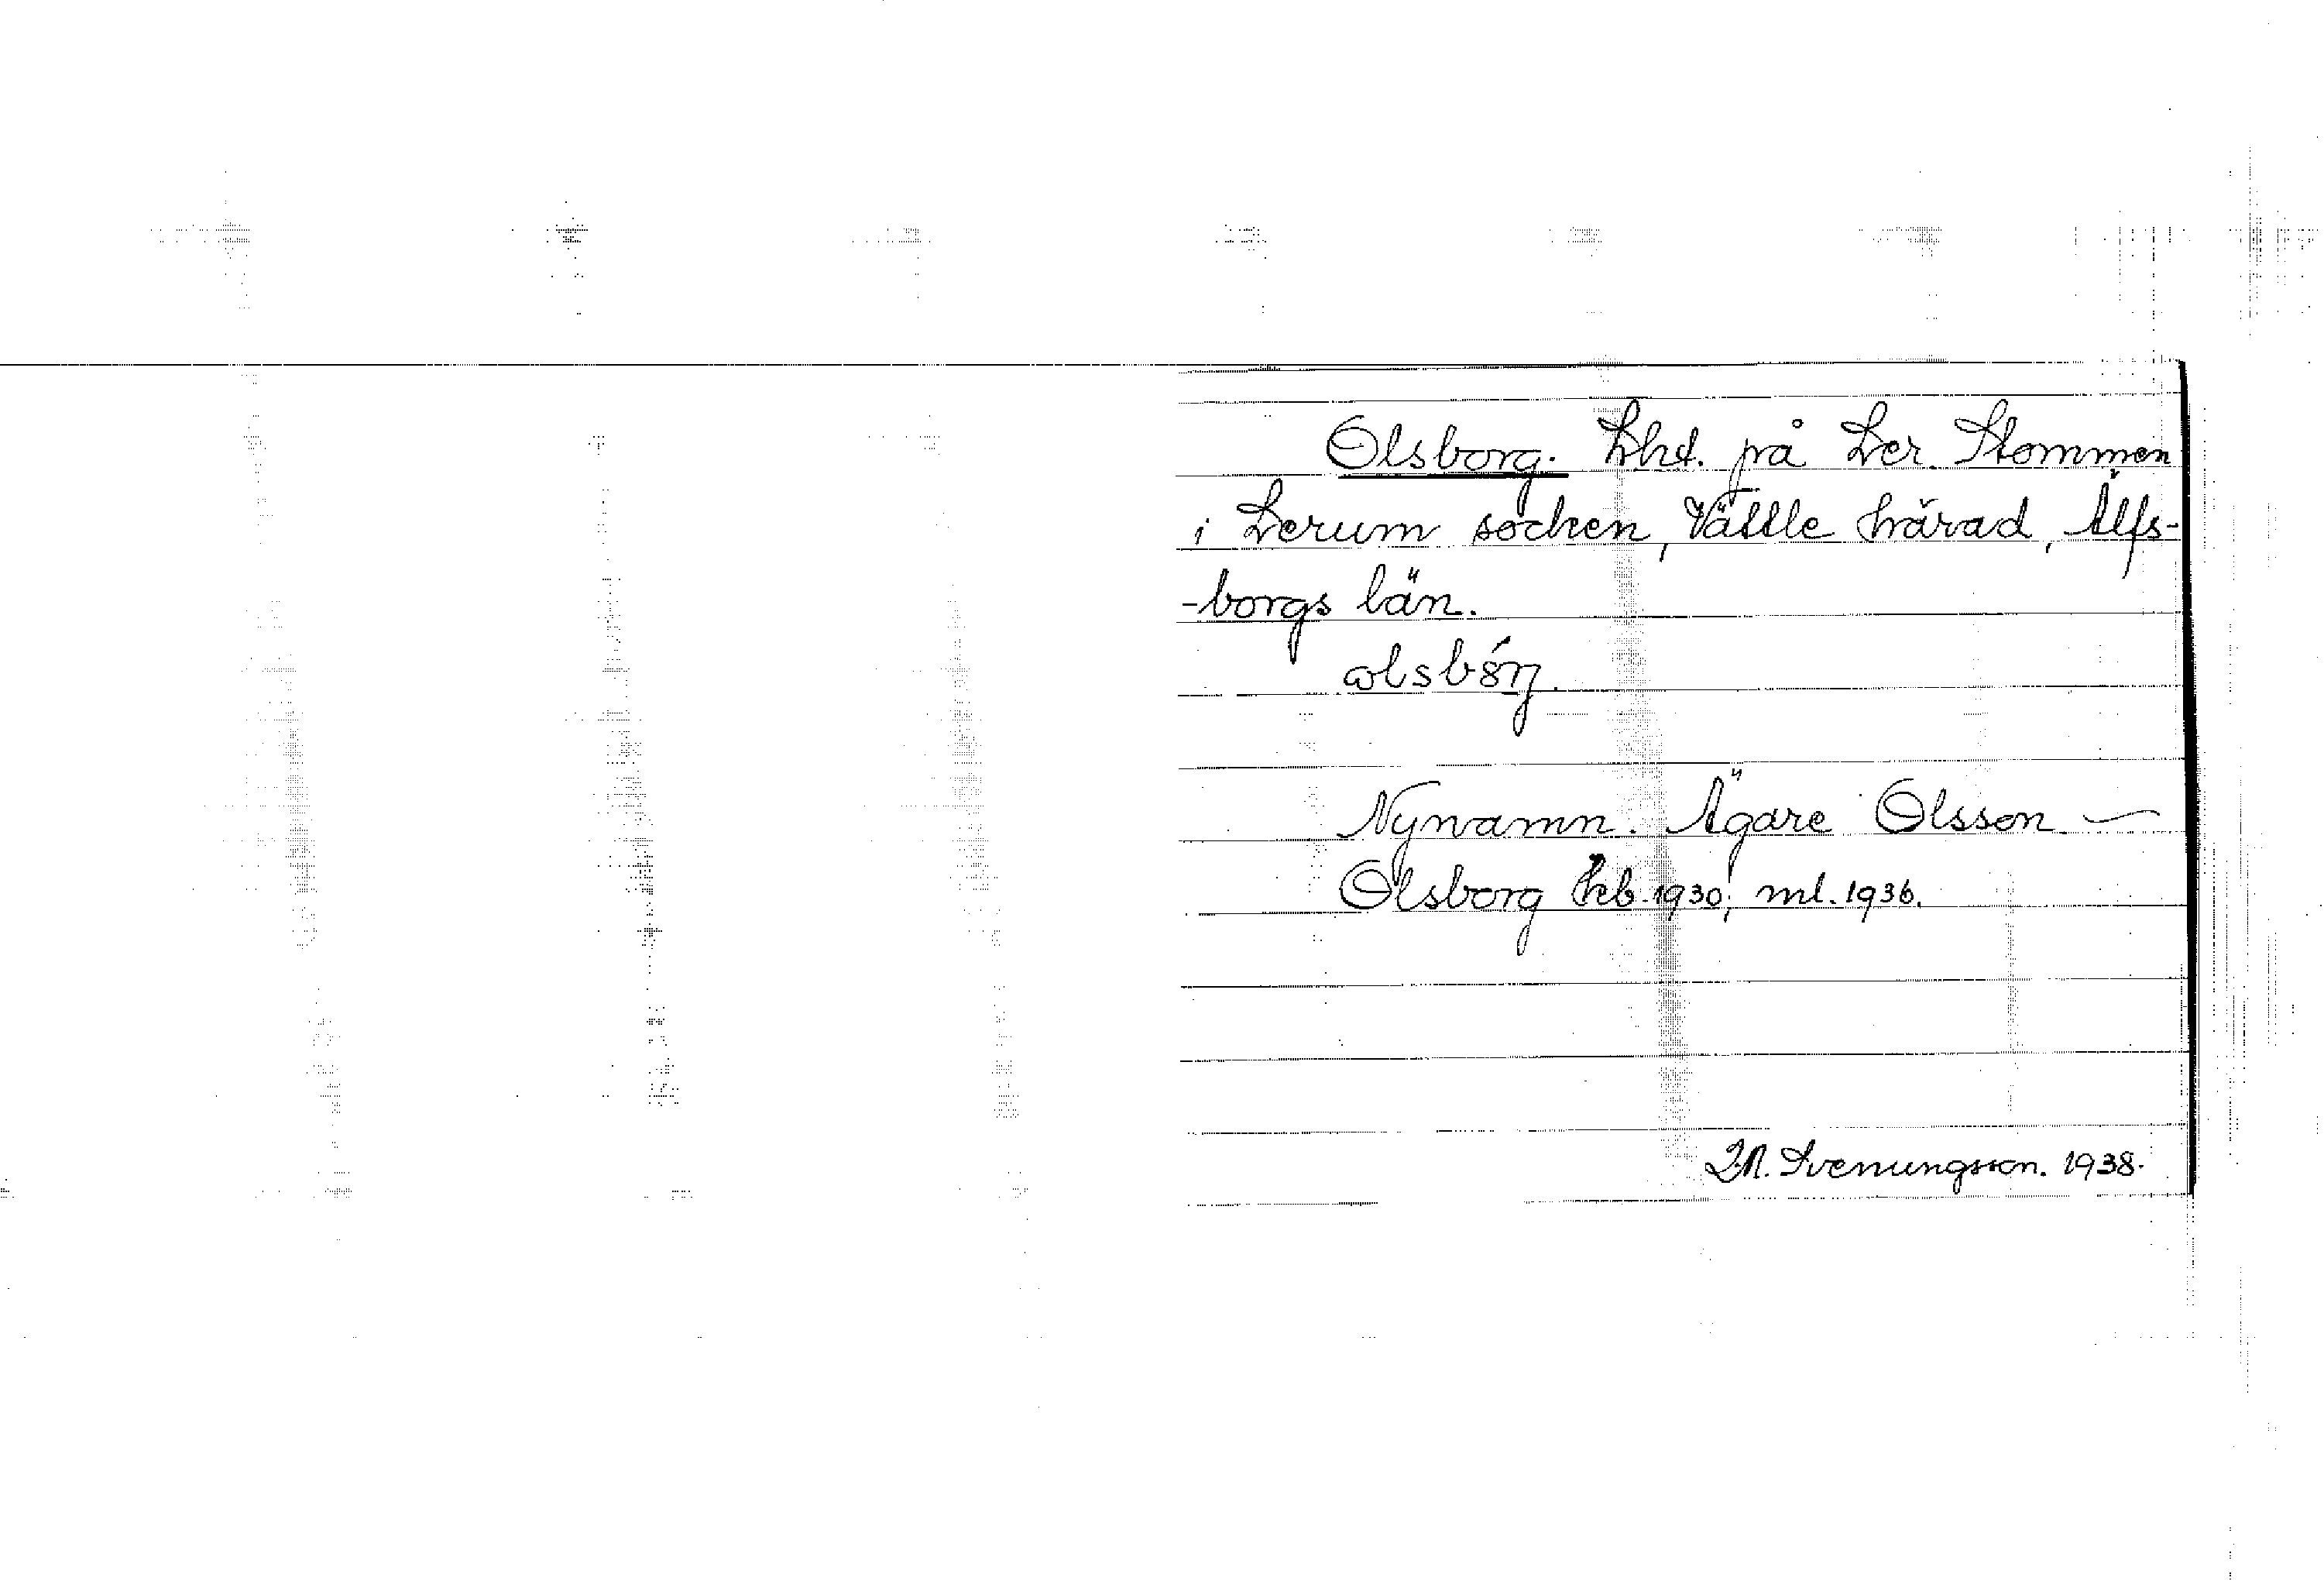 Olsborg. Lht. på Ler. Stommen
i Lerum socken, Vättle härad, Älfs-
-borgs län.
Nynamn. Ägare Olsson —
Olsborg kb. 1930; ml. 1936.
Svenungsson. 1938.